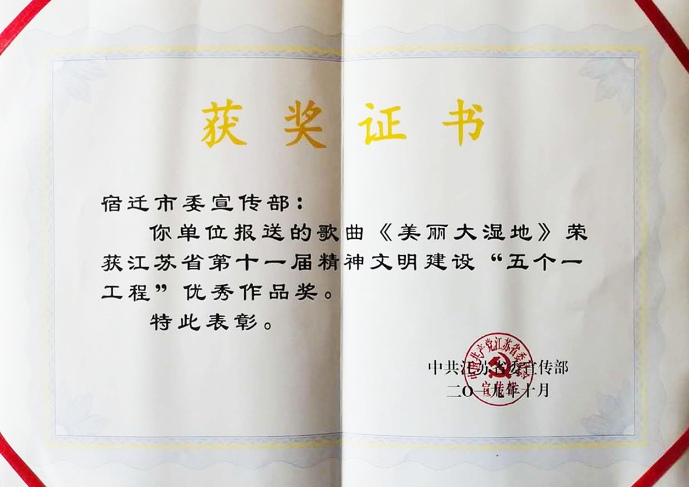 获奖证书
宿迁市委宣传部：
你单位报送的歌曲《美丽大湿地》荣
获江苏省第十一届精神文明建设“五个一
工程”优秀作品奖。
特此表彰。
中共江苏省委宣传部
二〇一九年十月
中国共产党江苏省委员会
宣传部